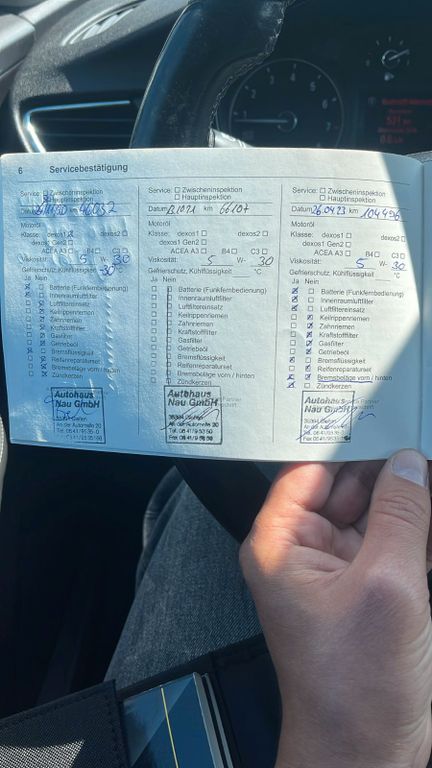 6 Servicebestätigung
Service: Zwischeninspektion
Hauptinspektion
km 46032
Motoröl
Klasse: dexos1 dexos2
dexos1 Gen2
ACEA A3 B4 C3
Viskosität: 5 W- 30
Gefrierschutz, Kühlflüssigkeit -30 °C
Ja Nein
Batterie (Funkfernbedienung)
Innenraumluftfilter
Luftfiltereinsatz
Keilrippenriemen
Zahnriemen
Kraftstofffilter
Gasfilter
Getriebeöl
Bremsflüssigkeit
Reifenreparaturset
Bremsbeläge vorn / hinten
Zündkerzen
Autohaus
Nau GmbH
An der Automeile 20
Service: Zwischeninspektion
Hauptinspektion
Datum km 66107
Motoröl
Klasse: dexos1 dexos2
dexos1 Gen2
ACEA A3 B4 C3
Viskosität: 5 W- 30
Gefrierschutz, Kühlflüssigkeit °C
Ja Nein
Batterie (Funkfernbedienung)
Innenraumluftfilter
Luftfiltereinsatz
Keilrippenriemen
Zahnriemen
Kraftstofffilter
Gasfilter
Getriebeöl
Bremsflüssigkeit
Reifenreparaturset
Bremsbeläge vorn / hinten
Zündkerzen
Autohaus
Nau GmbH
An der Automeile 20
Service: Zwischeninspektion
Hauptinspektion
Datum 26.04.23 km 104496
Motoröl
Klasse: dexos1 dexos2
dexos1 Gen2
ACEA A3 B4 C3
Viskosität: 5 W- 30
Gefrierschutz, Kühlflüssigkeit °C
Ja Nein
Batterie (Funkfernbedienung)
Innenraumluftfilter
Luftfiltereinsatz
Keilrippenriemen
Zahnriemen
Kraftstofffilter
Gasfilter
Getriebeöl
Bremsflüssigkeit
Reifenreparaturset
Bremsbeläge vorn / hinten
Zündkerzen
Autohaus
Nau GmbH
An der Automeile 20